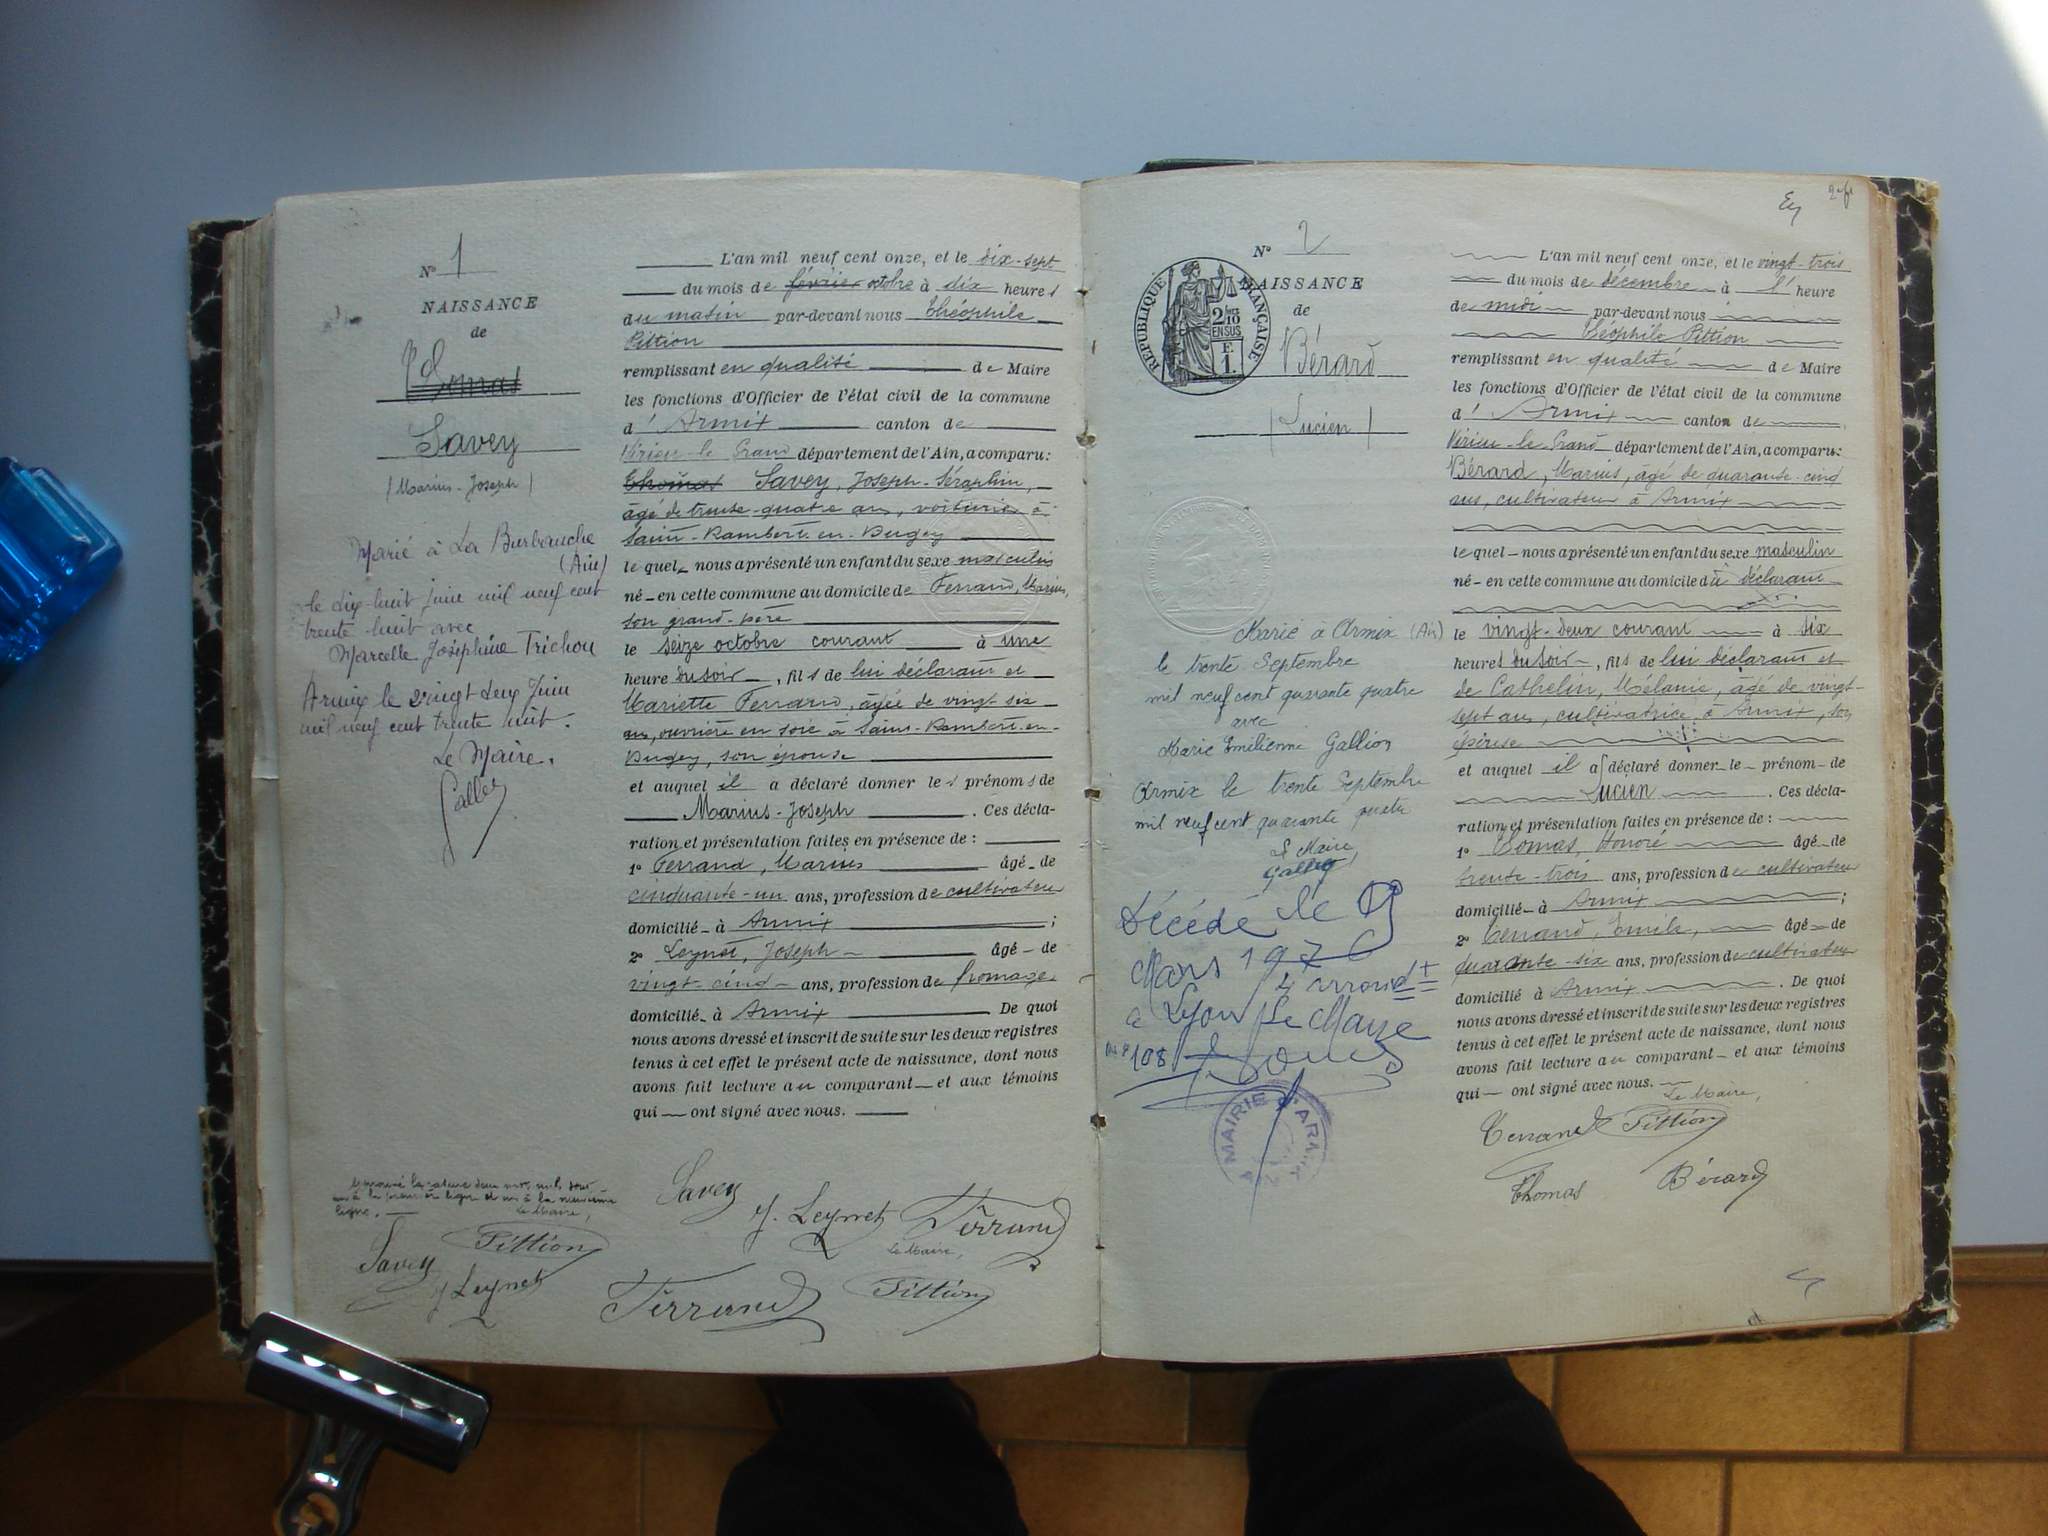 N° 1
NAISSANCE
de
Savey
(Marius-Joseph)
Marié à La Burbanche
(Ain)
le dix-huit juin mil neuf cent
trente-huit avec
Marcelle Joséphine Trichon
Armix le vingt deux Juin
mil neuf cent trente huit.
Le Maire.
L'an mil neuf cent onze, et le dix-sept
du mois de février octobre à dix heures
du matin par-devant nous Théophile
Pittion
remplissant en qualité de Maire
les fonctions d'Officier de l'état civil de la commune
d' Armix canton de
Virieu-le Grand département de l'Ain, a comparu:
Thomas Savey, Joseph-Séraphin,
âgé de trente-quatre ans, voiturier à
Saint-Rambert-en-Bugey
lequel nous a présenté un enfant du sexe masculin
né en cette commune au domicile de Ferrand, Marius,
son grand-père
le seize octobre courant à une
heure du soir, fils de lui déclarant et
Mariette Ferrand, âgée de vingt-six
ans, ouvrière en soie à Saint-Rambert-en-
Bugey, son épouse
et auquel il a déclaré donner les prénoms de
Marius-Joseph. Ces décla-
ration et présentation faites en présence de :
1° Ferrand, Marius âgé de
cinquante-un ans, profession de cultivateur
domicilié à Armix ;
2° Leynet, Joseph âgé de
vingt-cinq ans, profession de fromager
domicilié à Armix De quoi
nous avons dressé et inscrit de suite sur les deux registres
tenus à cet effet le présent acte de naissance, dont nous
avons fait lecture au comparant et aux témoins
qui ont signé avec nous.
Savey
J. Leynet Ferrand
Le Maire,
Ferrand Pittion
Le Maire,
Savey Pittion
J Leynet
N° 2
NAISSANCE
de
RÉPUBLIQUE FRANÇAISE
Bérard
(Lucien)
Marié à Armix (Ain)
le trente Septembre
mil neuf cent quarante quatre
avec
Marie Emilienne Gallion
Armix le trente Septembre
mil neuf cent quarante quatre
Le Maire
Décédé le 19
Mars 1976
à Lyon 4 arrondt
Le Maire
108
MAIRIE D'ARMIX
L'an mil neuf cent onze, et le vingt-trois
du mois de décembre à l' heure
de midi par-devant nous
Théophile Pittion
remplissant en qualité de Maire
les fonctions d'Officier de l'état civil de la commune
d' Armix canton de
Virieu-le Grand département de l'Ain, a comparu:
Bérard, Marius, âgé de quarante-cinq
ans, cultivateur à Armix
lequel nous a présenté un enfant du sexe masculin
né en cette commune au domicile du déclarant
le vingt-deux courant à six
heures du soir, fils de lui déclarant et
de Cathelin, Mélanie, âgée de vingt-
sept ans, cultivatrice à Armix, son
épouse
et auquel il a déclaré donner le prénom de
Lucien. Ces décla-
ration et présentation faites en présence de :
1° Thomas, Honoré âgé de
trente-trois ans, profession de cultivateur
domicilié à Armix ;
2° Ferrand, Emile, âgé de
quarante-six ans, profession de cultivateur
domicilié à Armix. De quoi
nous avons dressé et inscrit de suite sur les deux registres
tenus à cet effet le présent acte de naissance, dont nous
avons fait lecture au comparant et aux témoins
qui ont signé avec nous.
Le Maire,
Ferrand Pittion
Thomas Bérard